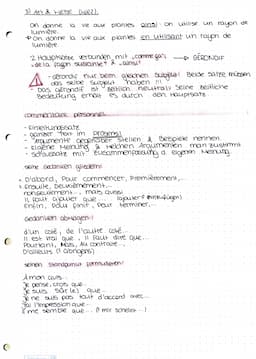 On donne la vie aux plantes ainsi on utilise un rayon de
lumière.
On donne la vie aux plantes en utilisant un rayon de
lumière
2 Hauptsätze verbunden mit
de la façon suivante → GÉRONDIF
gérondif nur beim gleichen Subjekt! Beide Sätze müssen
das selbe Subjekt haben !!!
Das gérondif ist zeitlich neutral. Seine zeitliche
Bedeutung erhält es durch den Hauptsatz.
commentaire personnel
- Einleitungssatz
- ganzer Text im présent!
- Argumente gegenüber stellen & Beispiele nennen
- eigene Meinung & welchen Argumenten man zustimmt
- Schlusssatz mit Zusammenfassung & eigener Meinung
seine Gedanken gliedern:
D'abord, Pour commencer, Premièrement,...
Ensuite, Deuxièmement,...
nonseulement... mais aussi
Il faut ajouter que...
Enfin, Pour finir, Pour terminer,...
Gedanken abwägen:
d'un côté, de l'autre côté...
Il est vrai que, il faut dire que...
Pourtant, Mais, Au contraire,...
D'ailleurs
seinen Standpunkt formulieren:
A mon avis...
Je pense, crois que...
Je suis sûr(e) que...
Je ne suis pas tout d'accord avec...
J'ai l'impression que...
Il me semble que...